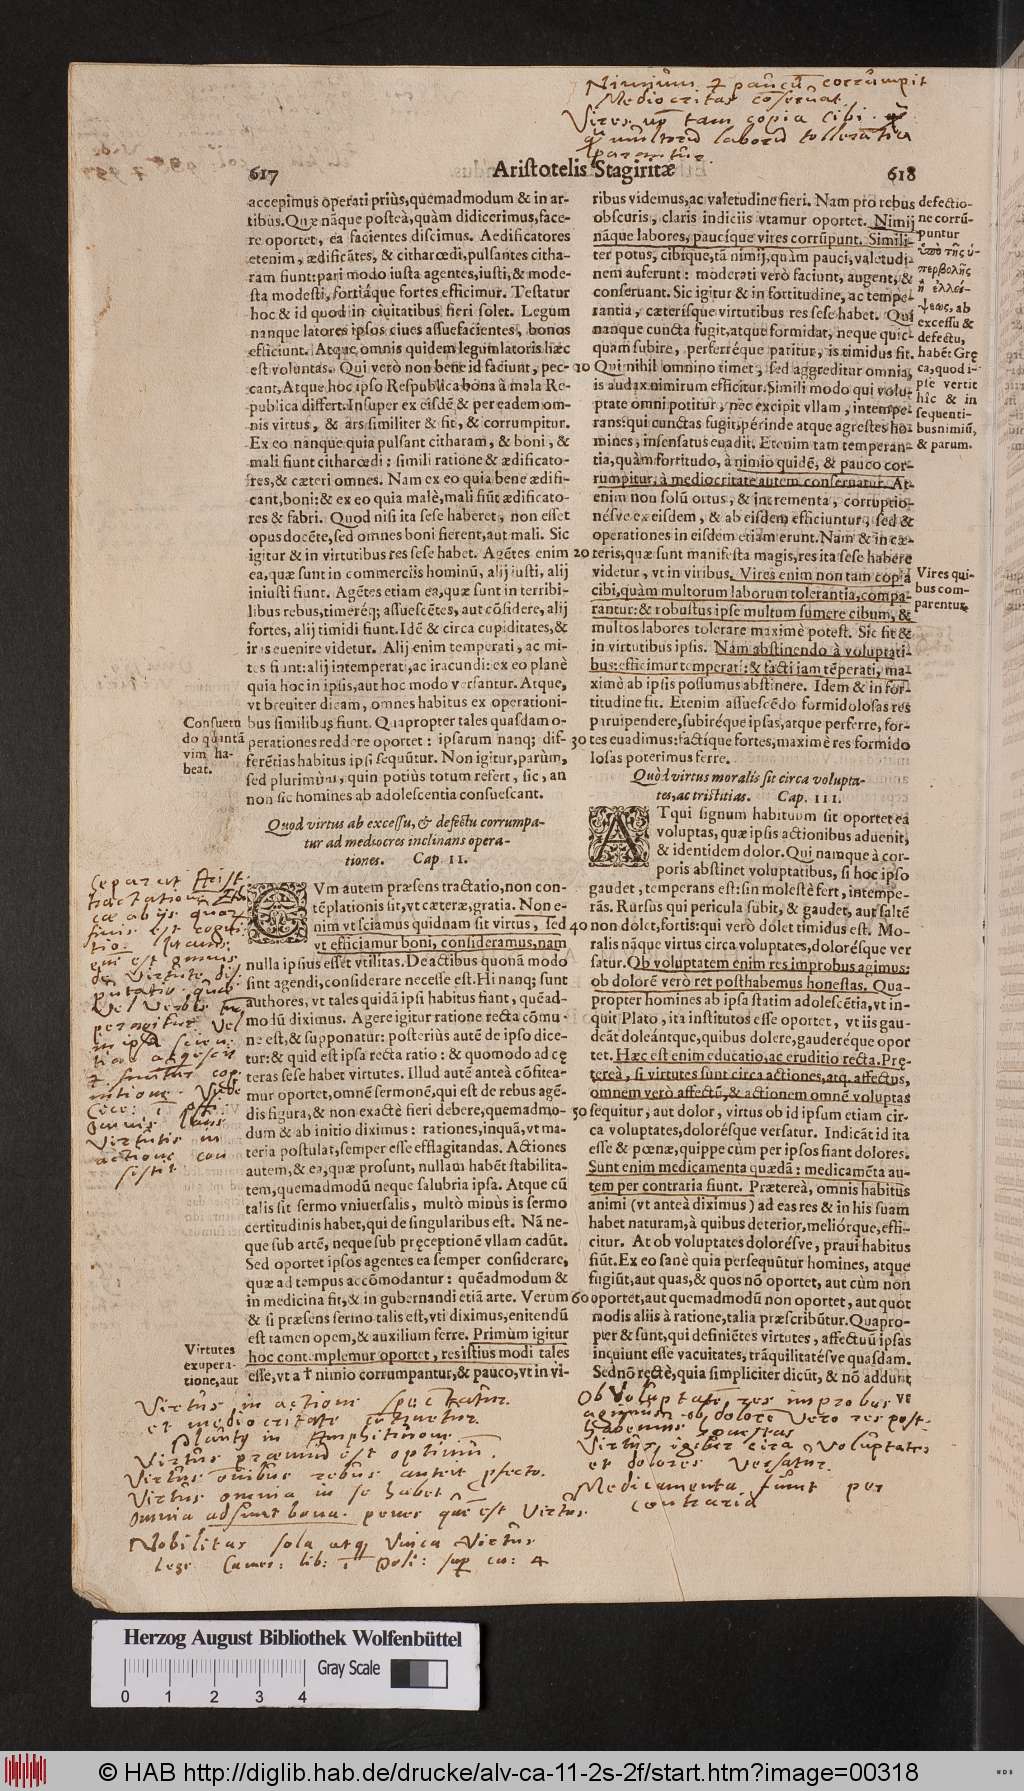 Nimium et paucum corrumpit
Mediocritas conseruat.
Vires tam copia cibi
multorum laborum tollerantia
parantur.
617
Aristotelis Stagiritæ
618
accepimus operati priùs, quemadmodum & in ar-
tibus. Quæ nāque posteà, quàm didicerimus, face-
re oportet, ea facientes discimus. Aedificatores
etenim, ædificātes, & citharœdi, pulsantes citha-
ram fiunt: pari modo iusta agentes, iusti, & mode-
sta modesti, fortiáque fortes efficimur. Testatur
hoc & id quod in ciuitatibus fieri solet. Legum
nanque latores ipsos ciues assuefacientes, bonos
efficiunt. Atque omnis quidem legum latoris hæc
est voluntas. Qui verò non bene id faciunt, pec-
cant, Atque hoc ipso Respublica bona à mala Re-
publica differt. Insuper ex eisdē & per eadem om-
nis virtus, & ars similiter & fit, & corrumpitur.
Ex eo nanque quia pulsant citharam, & boni, &
mali fiunt citharœdi: simili ratione & ædificato-
res, & cæteri omnes. Nam ex eo quia bene ædifi-
cant, boni: & ex eo quia malè, mali fiūt ædificato-
res & fabri. Quod nisi ita sese haberet, non esset
opus docēte, sed omnes boni fierent, aut mali. Sic
igitur & in virtutibus res sese habet. Agētes enim
ea, quæ sunt in commerciis hominū, alij iusti, alij
iniusti fiunt. Agētes etiam ea, quæ sunt in terribi-
libus rebus, timeréq; assuescētes, aut cōfidere, alij
fortes, alij timidi fiunt. Idē & circa cupiditates, &
iras euenire videtur. Alij enim temperati, ac mi-
tes fiunt: alij intemperati, ac iracundi: ex eo planè
quia hoc in ipsis, aut hoc modo versantur. Atque,
vt breuiter dicam, omnes habitus ex operationi-
bus similibus fiunt. Quapropter tales quasdam o-
perationes reddere oportet: ipsarum nanq; dif-
ferētias habitus ipsi sequūtur. Non igitur, parùm,
sed plurimùm, quin potiùs totum refert, sic, an
non sic homines ab adolescentia consuescant.
Consuetu
do quantā
vim ha-
beat.
Quod virtus ab excessu, & defectu corrumpa-
tur ad mediocres inclinans opera-
tiones. Cap. II.
CVm autem præsens tractatio, non con-
tēplationis sit, vt cæteræ, gratia. Non e-
nim vt sciamus quidnam sit virtus, sed
vt efficiamur boni, consideramus, nam
nulla ipsius esset vtilitas. De actibus quonā modo
sint agendi, considerare necesse est. Hi nanq; sunt
authores, vt tales quidā ipsi habitus fiant, quēad-
modū diximus. Agere igitur ratione recta cōmu-
ne est, & supponatur: posteriùs autē de ipso dice-
tur: & quid est ipsa recta ratio: & quomodo ad cę
teras sese habet virtutes. Illud autē anteà cōfitea-
mur oportet, omnē sermonē, qui est de rebus agē-
dis figura, & non exactè fieri debere, quemadmo-
dum & ab initio diximus: rationes, inquā, vt ma-
teria postulat, semper esse efflagitandas. Actiones
autem, & ea, quæ prosunt, nullam habēt stabilita-
tem, quemadmodū neque salubria ipsa. Atque cū
talis sit sermo vniuersalis, multò minùs is sermo
certitudinis habet, qui de singularibus est. Nā ne-
que sub artē, neque sub pręceptionē vllam cadūt.
Sed oportet ipsos agentes ea semper considerare,
quæ ad tempus accōmodantur: quēadmodum &
in medicina fit, & in gubernandi etiā arte. Verum
& si præsens sermo talis est, vti diximus, enitendū
est tamen opem, & auxilium ferre. Primùm igitur
hoc contemplemur oportet, res istius modi tales
esse, vt a † nimio corrumpantur, & pauco, vt in vi-
Separat Arist.
tractationem
Virtutes
exupera-
tione, aut
10
20
30
40
50
60
ribus videmus, ac valetudine fieri. Nam pro rebus
obscuris, claris indiciis vtamur oportet. Nimij
nāque labores, paucíque vires corrūpunt. Simili-
ter potus, cibíque, tā nimij, quàm pauci, valetudi-
nem auferunt: moderati verò faciunt, augent, &
conseruant. Sic igitur & in fortitudine, ac tempe-
rantia, cæterisque virtutibus res sese habet. Qui
nanque cuncta fugit, atque formidat, neque quic-
quam subire, perferréque patitur, is timidus fit.
Qui nihil omnino timet, sed aggreditur omnia,
is audax nimirum efficitur. Simili modo qui volu-
ptate omni potitur, nec excipit vllam, intempe-
rans: qui cunctas fugit, perinde atque agrestes ho-
mines, insensatus euadit. Etenim tam temperan-
tia, quàm fortitudo, à nimio quidē, & pauco cor-
rumpitur, à mediocritate autem conseruatur. At-
enim non solū ortus, & incrementa, corruptio-
nésve ex eisdem, & ab eisdem efficiuntur, sed &
operationes in eisdem etiam erunt. Nam & in cæ-
teris, quæ sunt manifesta magis, res ita sese habere
videtur, vt in viribus. Vires enim non tam copia
cibi, quàm multorum laborum tolerantia, compa-
rantur: & robustus ipse multum sumere cibum, &
multos labores tolerare maximè potest. Sic fit &
in virtutibus ipsis. Nam abstinendo à voluptati-
bus: efficimur temperati: & facti iam tēperati, ma-
ximè ab ipsis possumus abstinere. Idem & in for-
titudine fit. Etenim assuescēdo formidolosas res
paruipendere, subiréque ipsas, atque perferre, for-
tes euadimus: factíque fortes, maximè res formido
losas poterimus ferre.
defectio-
ne corrū-
puntur
ὑπὸ τῆς ὑ-
περβολῆς
ἢ ἐλλεί-
ψεως, ab
excessu &
defectu,
habēt Grę
ca, quod i-
pse vertit
hîc & in
sequenti-
bus nimiū,
& parum.
Vires qui-
bus com-
parentur.
Quòd virtus moralis sit circa volupta-
tes, ac tristitias. Cap. III.
ATqui signum habituum sit oportet ea
voluptas, quæ ipsis actionibus aduenit,
& identidem dolor. Qui namque à cor-
poris abstinet voluptatibus, si hoc ipso
gaudet, temperans est: sin molestè fert, intempe-
rās. Rursùs qui pericula subit, & gaudet, aut saltē
non dolet, fortis: qui verò dolet timidus est. Mo-
ralis nāque virtus circa voluptates, dolorésque ver
satur. Ob voluptatem enim res improbas agimus:
ob dolorē verò ret posthabemus honestas. Qua-
propter homines ab ipsa statim adolescētia, vt in-
quit Plato, ita institutos esse oportet, vt iis gau-
deāt doleántque, quibus dolere, gaudereque opor
tet. Hæc est enim educatio, ac eruditio recta. Pre-
tereà, si virtutes sunt circa actiones, atq. affectus,
omnem verò affectū, & actionem omnē voluptas
sequitur, aut dolor, virtus ob id ipsum etiam cir-
ca voluptates, dolorésque versatur. Indicāt id ita
esse & pœnæ, quippe cùm per ipsos fiant dolores.
Sunt enim medicamenta quædā: medicamēta au-
tem per contraria fiunt. Prætereà, omnis habitus
animi (vt anteà diximus) ad eas res & in his suam
habet naturam, à quibus deterior, meliórque, effi-
citur. At ob voluptates dolorésve, praui habitus
fiūt. Ex eo sanè quia persequūtur homines, atque
fugiūt, aut quas, & quos nō oportet, aut cùm non
oportet, aut quemadmodū non oportet, aut quot
modis aliis à ratione, talia præscribūtur. Quapro-
pter & sunt, qui definiētes virtutes, affectuū ipsas
inquiunt esse vacuitates, trāquilitatésve quasdam.
Sed nō rectè, quia simpliciter dicūt, & nō addunt
ve
Virtus in actione spectatur.
et mediocritate continetur.
Plautus in Amphitruone.
Virtus præmium est optimum.
Virtus omnibus rebus anteit profecto.
Virtus omnia in se habet
omnia adsunt bona penes quem est Virtus.
Nobilitas sola atque Vnica Virtus
Ob Voluptatem res improbas
agimus ob dolorem Vero res post-
habemus honestas
Virtus igitur circa Voluptates
et dolores Versatur.
Medicamenta fiunt per
contraria
Herzog August Bibliothek Wolfenbüttel
Gray Scale
0 1 2 3 4
© HAB http://diglib.hab.de/drucke/alv-ca-11-2s-2f/start.htm?image=00318